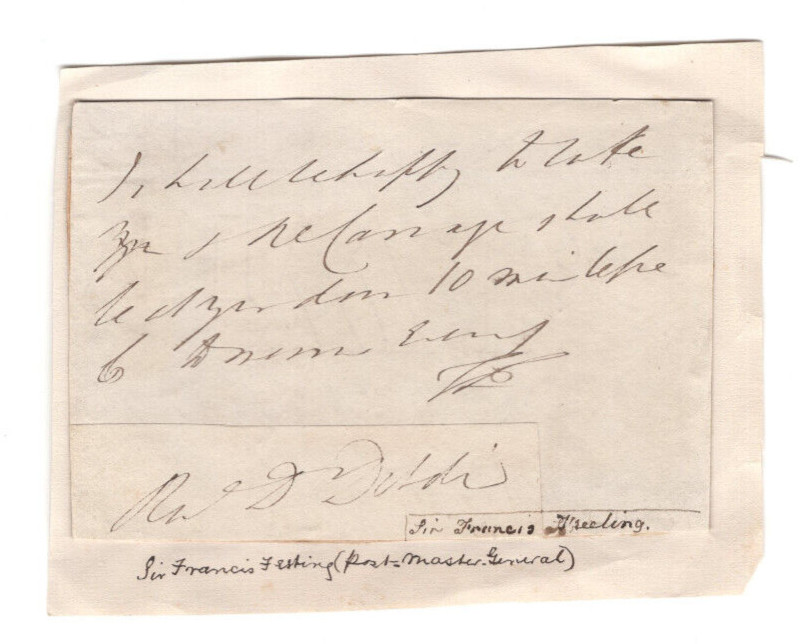 I shall be happy to take
you & the Carriage shall
be at your door 10 min before
6 tomorrow Eveng
FF
Revd Dr Dibdin
Sir Francis Freeling.
Sir Francis Festing (Post-Master-General)